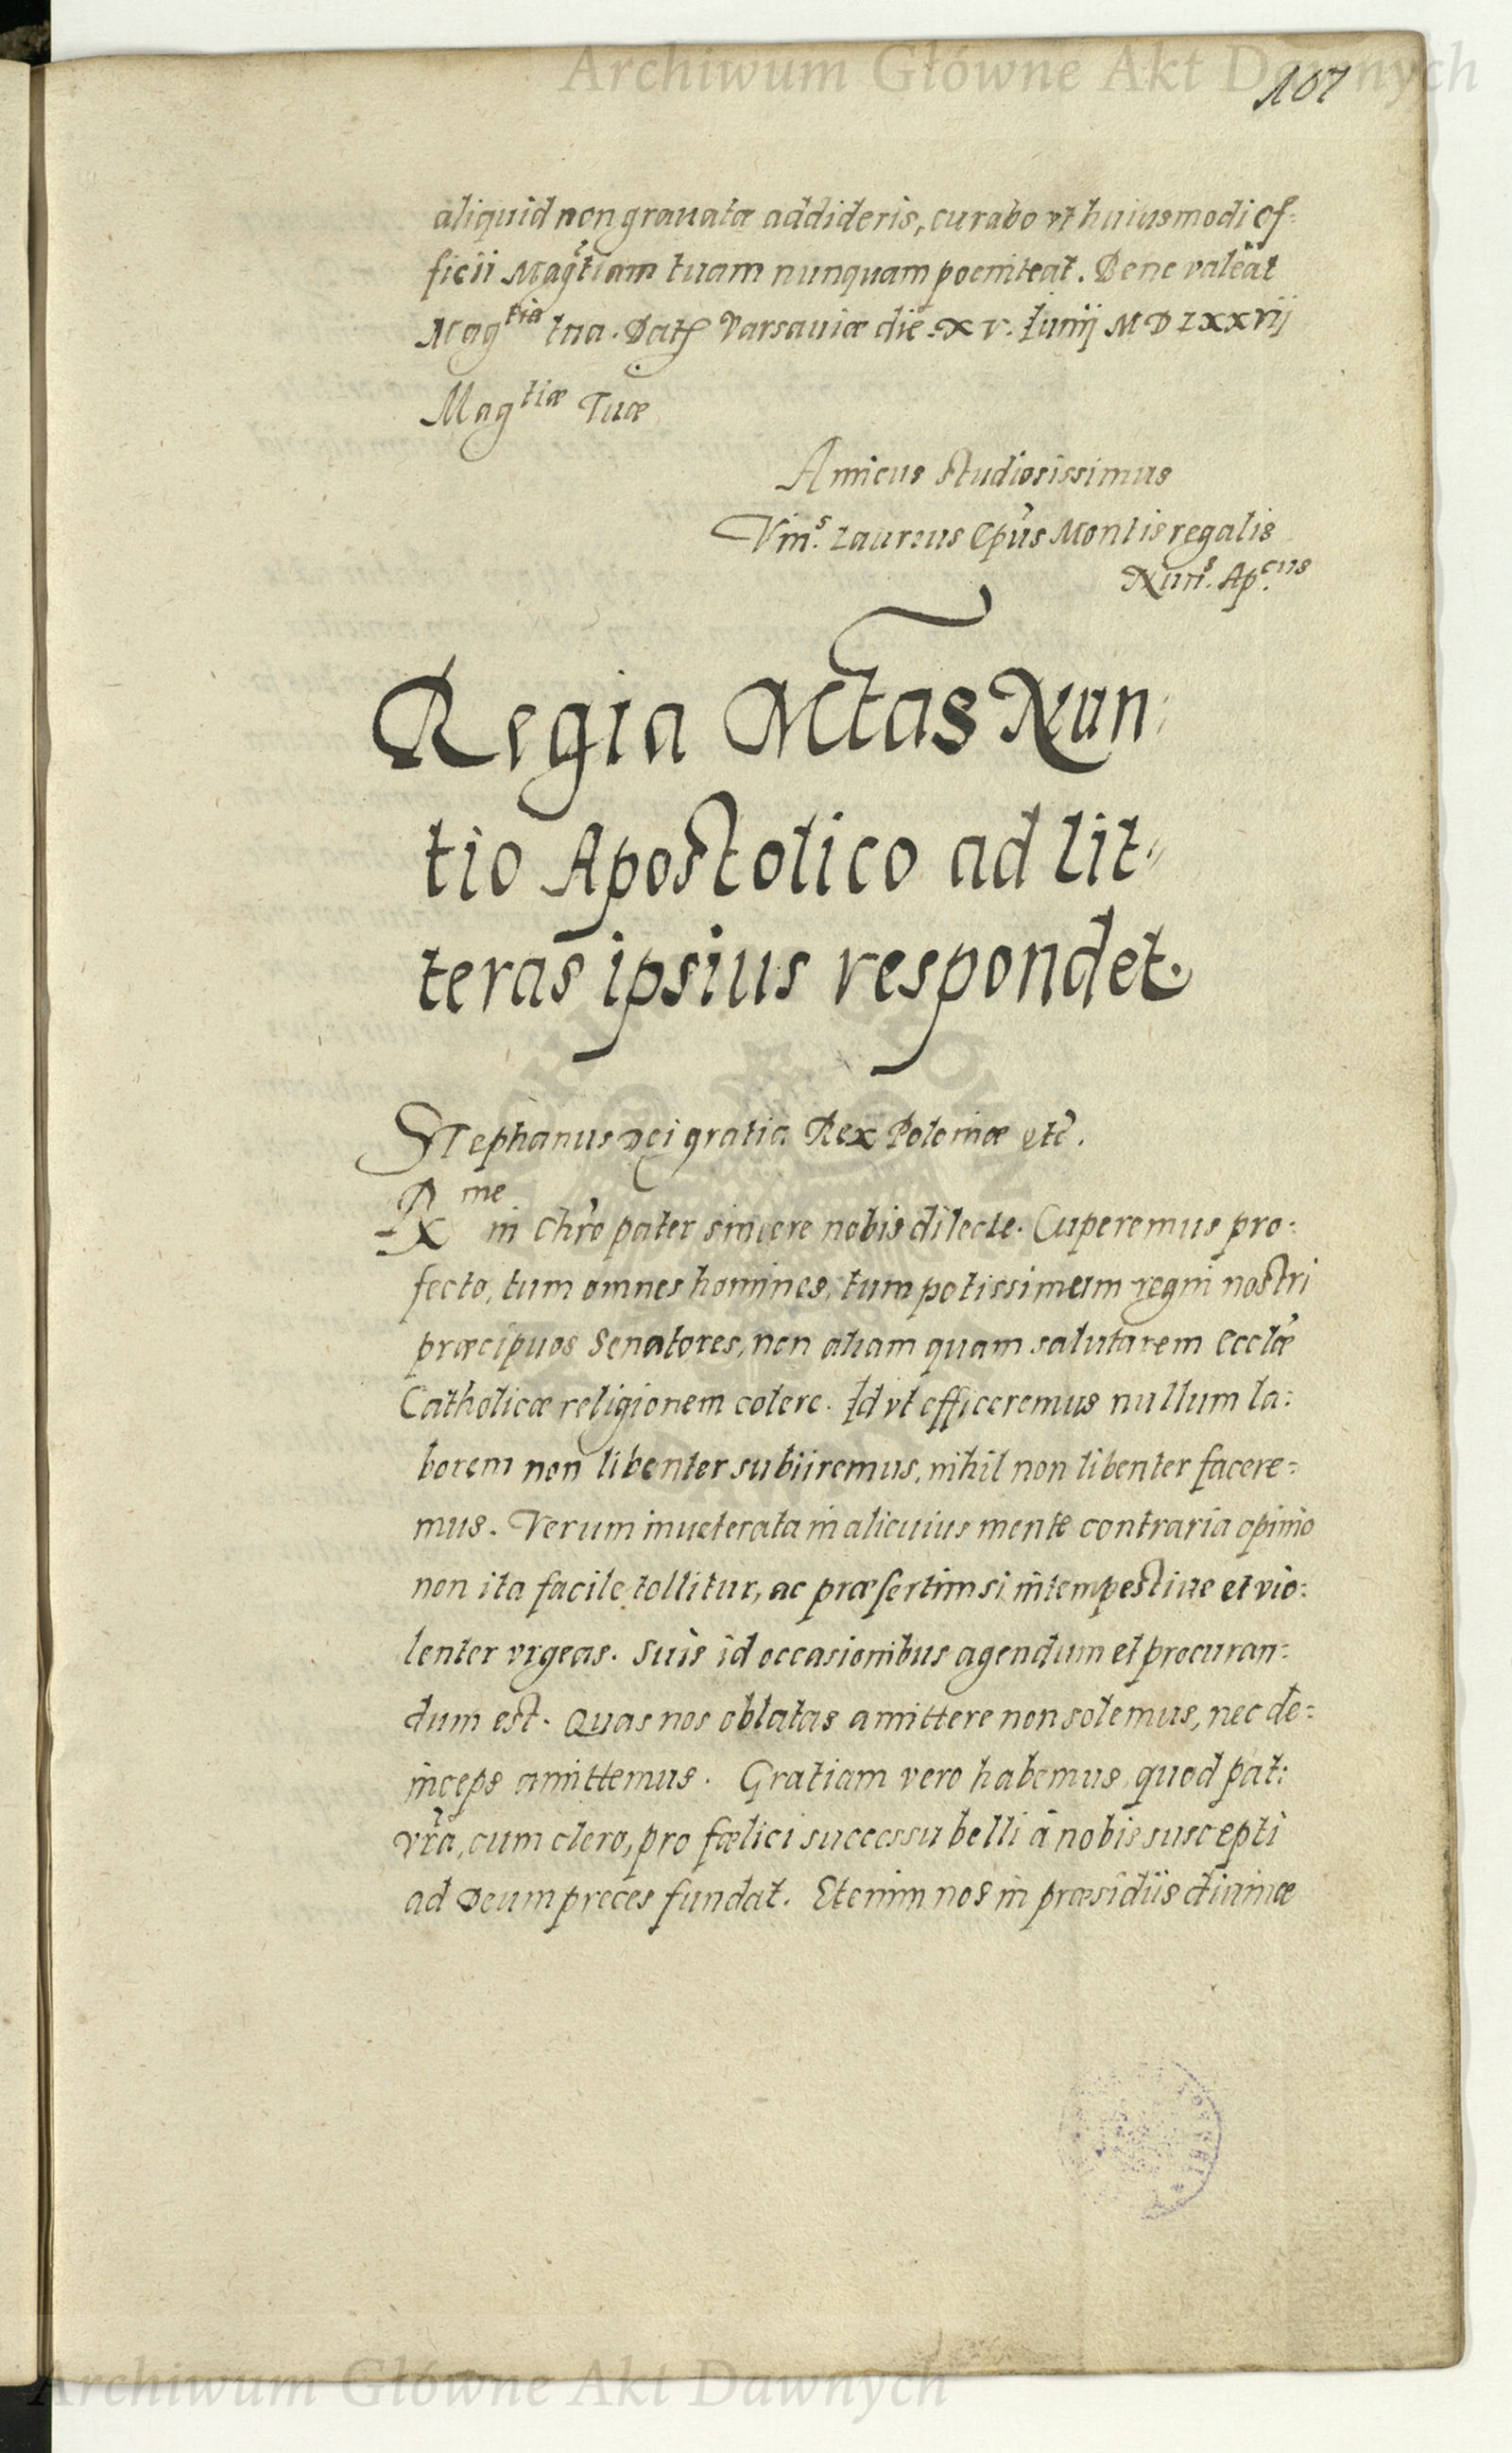 Archiwum Główne Akt Dawnych
107
aliquid non grauatæ addideris, curabo vt huiusmodi of-
ficii Mag̃tiam tuam nunquam poeniteat. Bene valeat
Magtia tua. Dat Varsauiæ die. XV. Iunij MDLXXVij
Magtiæ Tuæ
Amicus studiosissimus
Vins. Laureus Epũs Montisregalis
Nuns. Apcus
Regia Mtas Nun
tio Apostolico ad lit
teras ipsius respondet.
Stephanus Dei gratia Rex Poloniæ etc.
Rme in Chro pater sincere nobis dilecte. Cuperemus pro:
fecto, tum omnes homines, tum potissimum regni nostri
præcipuos Senatores, non aliam quam salutarem Ecclæ
Catholicæ religionem colere. Id vt efficeremus nullum la:
borem non libenter subiiremus, nihil non libenter facere-
mus. Verum inueterata in alicuius mente contraria opinio
non ita facile tollitur, ac præsertim si intempestiue et vio:
lenter vrgeas. Suis id occasionibus agendum et procuran:
dum est. Quas nos oblatas amittere non solemus, nec de:
inceps amittemus. Gratiam vero habemus, quod pat:
vra, cum clero, pro fælici successu belli à nobis suscepti
ad Deum preces fundat. Etenim nos in præsidiis diuinæ
Archiwum Główne Akt Dawnych